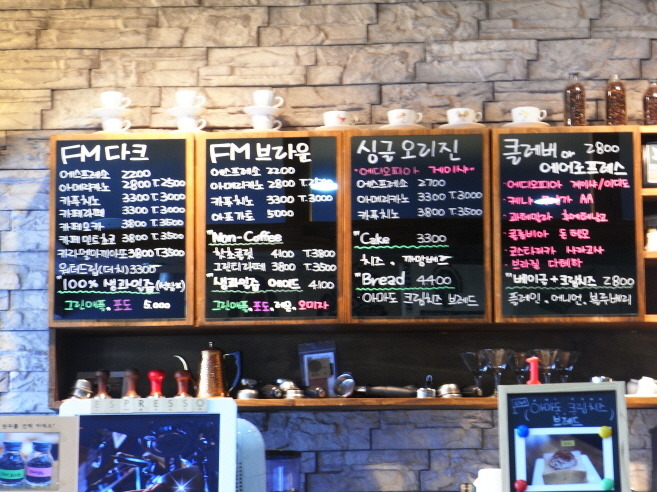 FM 다크
에스프레소 2200
아메리카노 2800 T.2500
카푹치노 3300 T.3000
카페라떼 3300 T.3000
카페모카 3800 T.3500
3800 T.3500
카라멜마끼아또 3800 T.3500
워터드립(더치) 3300
"100% 생과일즙
그린애플, 포도 5.000
FM 브라운
에스프레소 2200
아메리카노 2800
카푹치노 3300 T.3000
아포가토 5000
"Non-Coffee
핫초콜릿 4100 T.3800
그린티라떼 3800 T.3500
"생과일 에이드 4100
그린애플, 포도, 레몬, 오미자
싱글 오리진
에디오피아
에스프레소 2700
아메리카노 3300 T.3000
카푹치노 3800 T.3500
"Cake 3300
치즈.
"Bread 4400
아마도 크림치즈 브레드
클레버 or 2800
에어로프레스
에디오피아
케냐 AA
과테말라
콜롬비아
코스타리카
브라질
"베이글+크림치즈 2800
플레인, 어니언, 블루베리
ESPRESSO
아마도 크림치즈
브레드